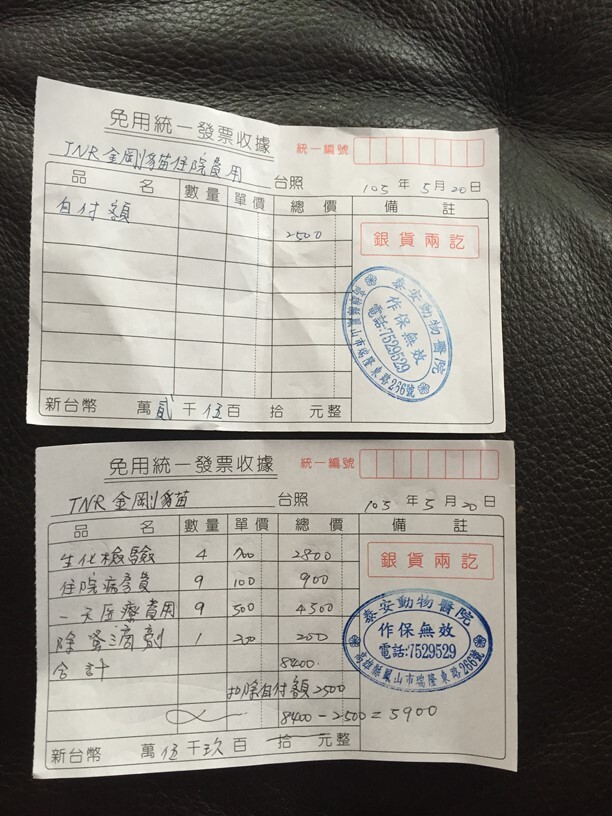 免用統一發票收據
統一編號
TNR 金剛貓住院費用 台照
105 年 5 月 20 日
品 名 數量 單價 總 價 備 註
自付額 2500
銀貨兩訖
泰安動物醫院
作保無效
電話:7529529
高雄縣鳳山市瑞隆東路266號
新台幣 萬 貳 千 伍 百 拾 元整
免用統一發票收據
統一編號
TNR 金剛貓 台照
105 年 5 月 20 日
品 名 數量 單價 總 價 備 註
生化檢驗 4 700 2800
銀貨兩訖
住院病房費 9 100 900
一天医療費用 9 500 4500
除蚤滴劑 1 200 200
合計 8400
扣除自付額2500
8400-2500=5900
泰安動物醫院
作保無效
電話:7529529
高雄縣鳳山市瑞隆東路266號
新台幣 萬 伍 千 玖 百 拾 元整